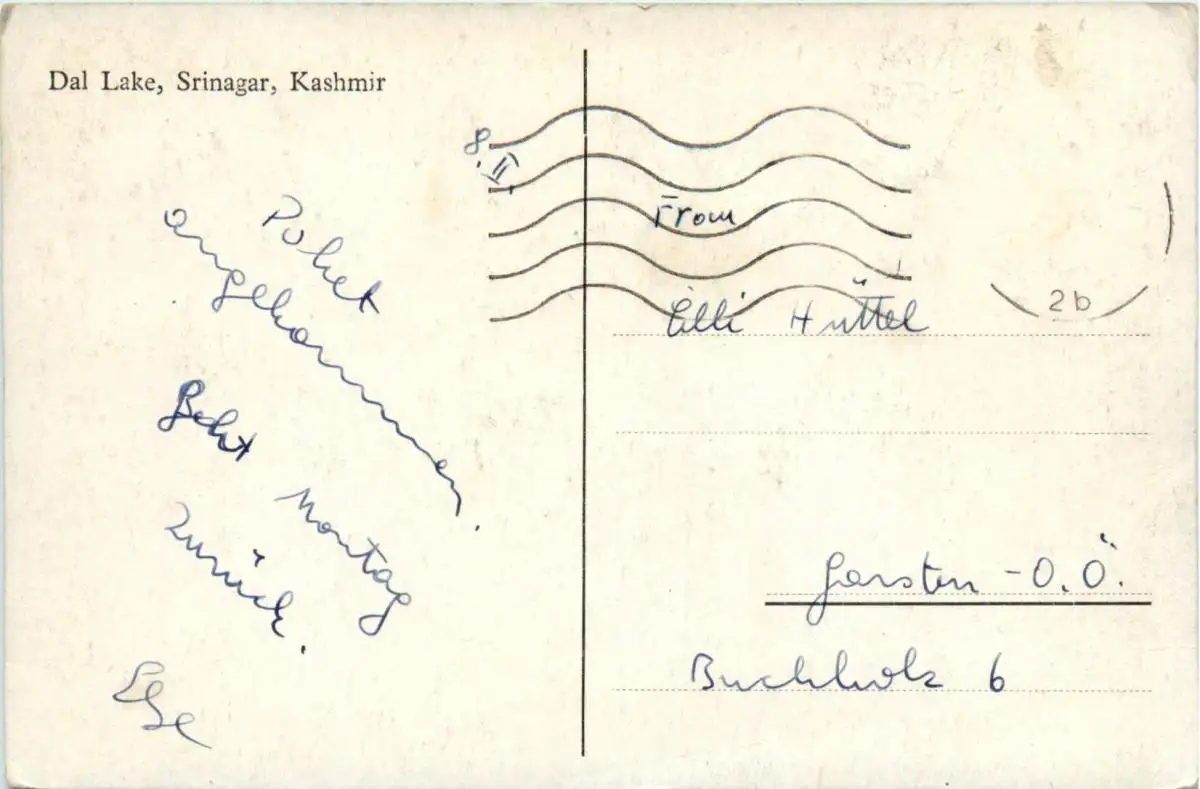 Dal Lake, Srinagar, Kashmir
8. II.
Paket
angekommen.
Geht Montag
zurück.
Else
From
Lilli Hüttel
Garsten - O.Ö.
Buchholz 6
2b